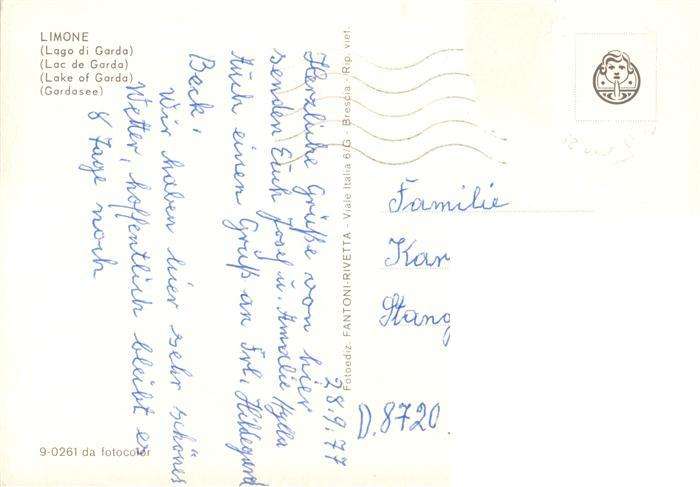 LIMONE
(Lago di Garda)
(Lac de Garda)
(Lake of Garda)
(Gardasee)
28.9.77
Herzliche Grüße von hier
senden Euch Josef u. Amalie
Auch einen Gruß an Frl. Hildegard
Beck,
Wir haben hier sehr schönes
Wetter, hoffentlich bleibt es
8 Tage noch
Fotoediz. FANTONI-RIVETTA - Viale Italia 6/G - Brescia - Rip. viet.
Familie
Kar
Stang
D. 8720
9-0261 da fotocolor